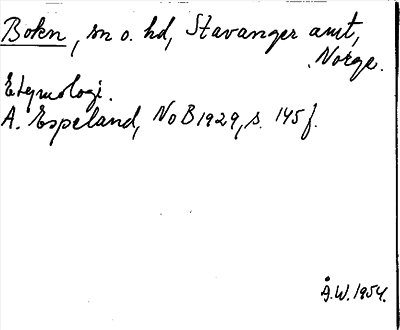 Boken, sn o. hd, Stavanger amt,
Norge.
Etymologi.
A. Espeland, NoB 1929, s. 145 f.
Å.W. 1954.